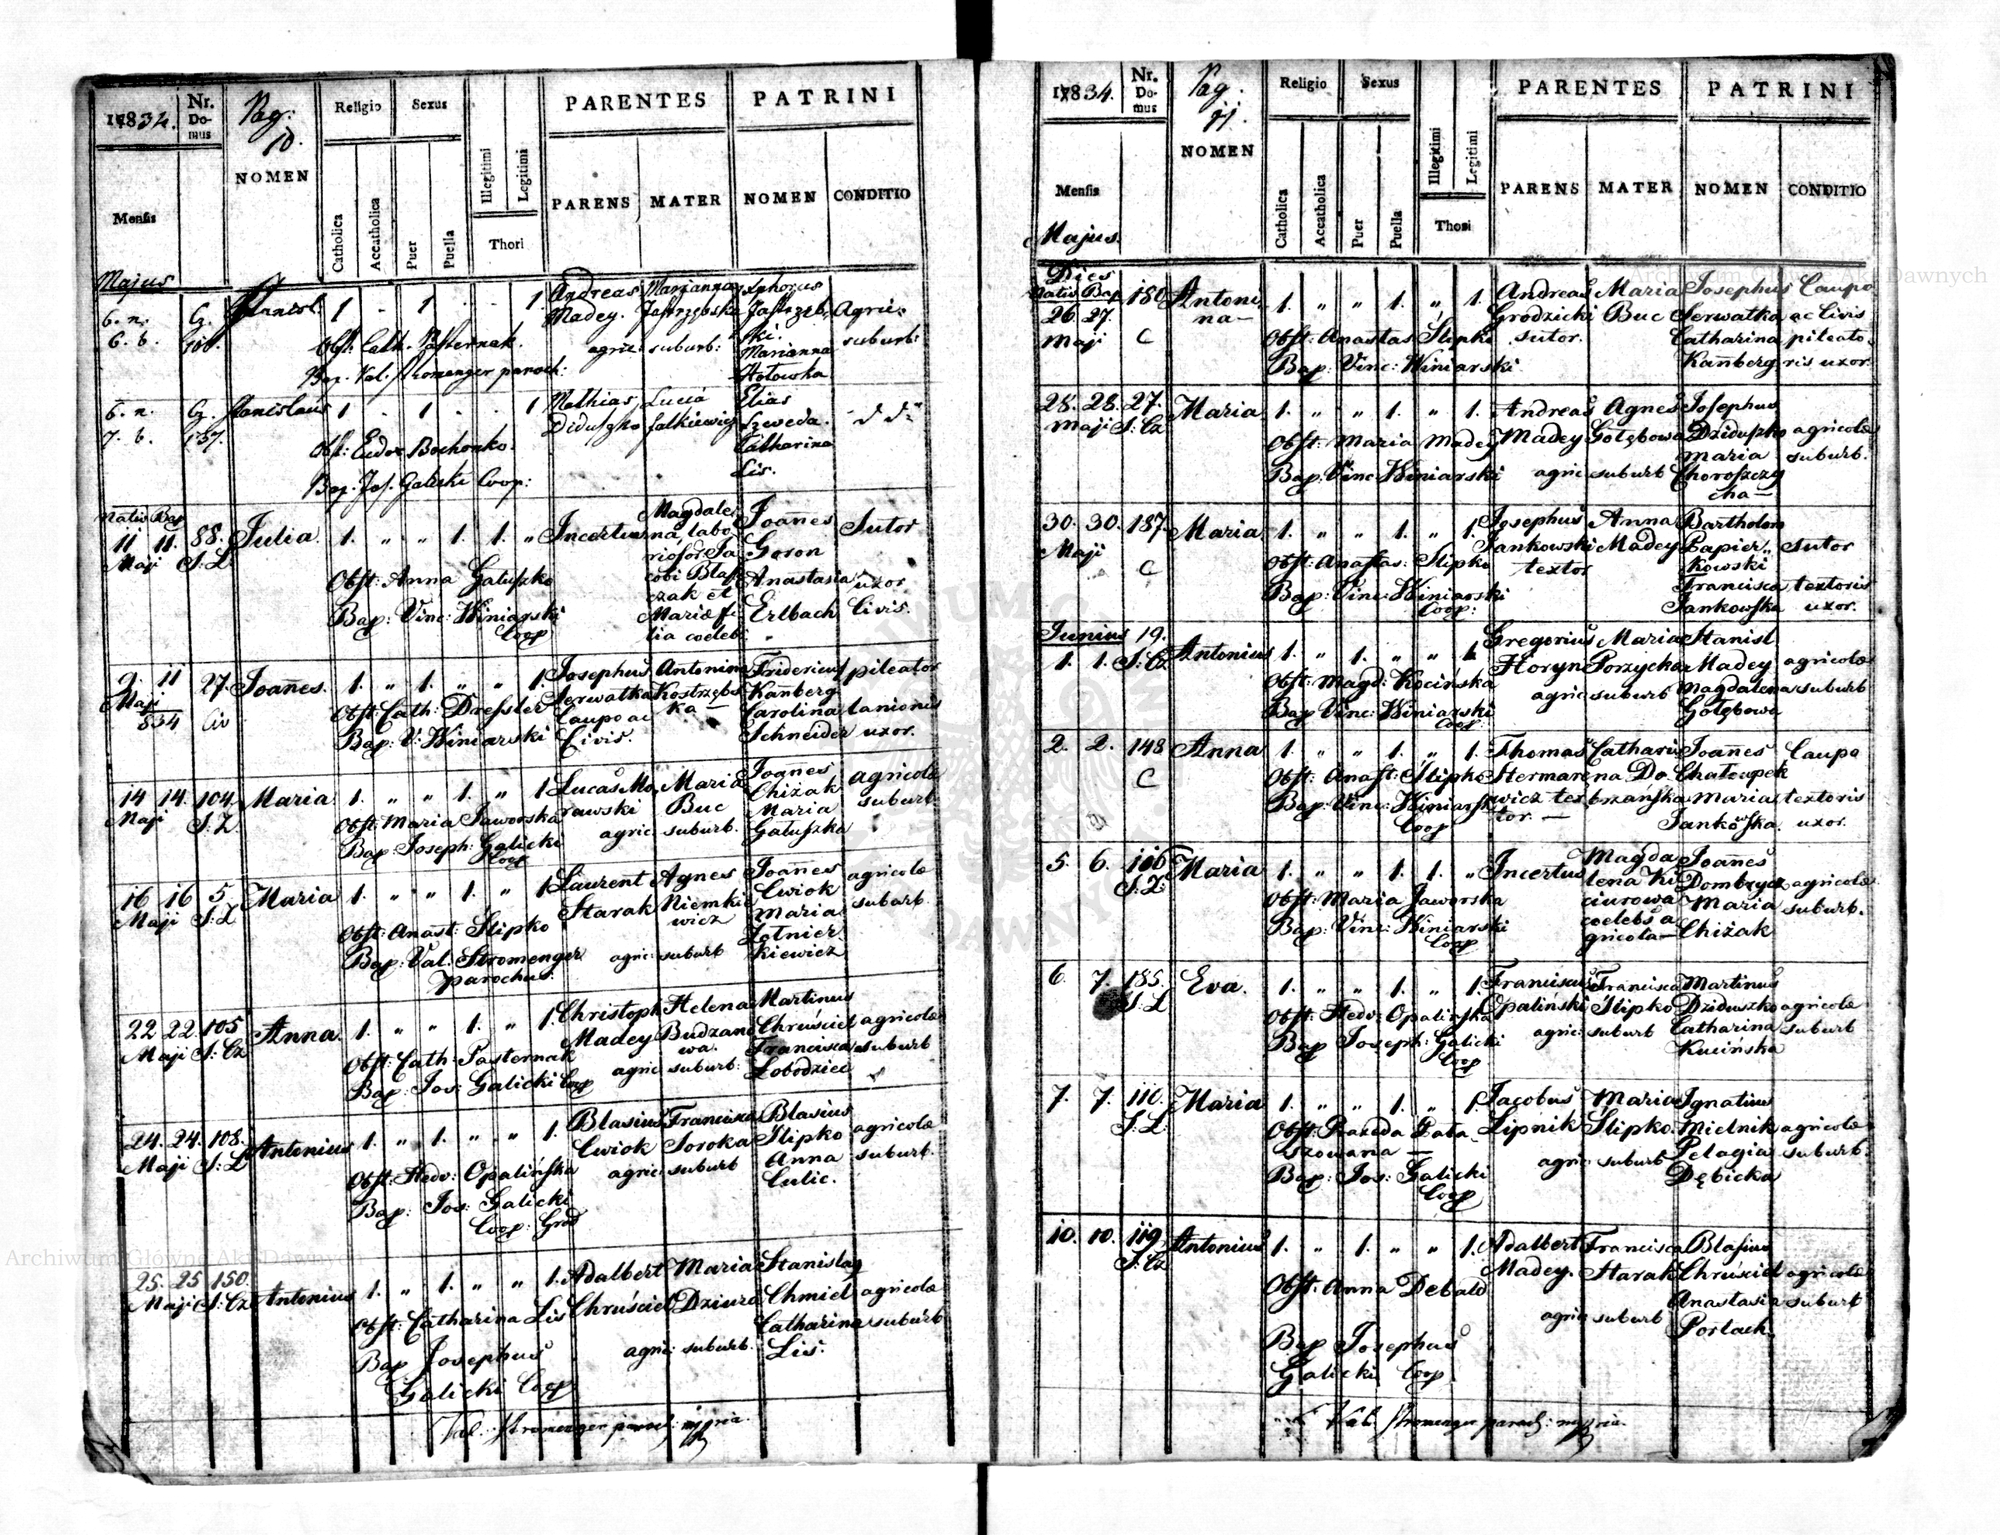 1834.
Nr. Domus
Pag: 10.
NOMEN
Religio
Sexus
PARENTES
PATRINI
Mensis
Catholica
Accatholica
Puer
Puella
Illegitimi
Legitimi
Thori
PARENS
MATER
NOMEN
CONDITIO
Majus
6. n. G. Stanisl. 1 - 1 - - 1 Andreas Marianna Xphorus
6. b. Madey. Jastrzębska Jastrzęb Agric:
Obst: Cath. Pasternak. agric: suburb: ski. suburb:
Marianna
Bap. Val. Stromenger paroch: Hołowka
6. n. G. Stanislaus 1 - 1 - - 1 Mathias Lucia Elias
7. b. 157. Diduszko falkiewicz Szweda. - d d:
Obst: Eudox Bochonko. Catharina
Bap. Jos. Galicki Coop: Lis.
Nativ Bap
11 11 88. Julia. 1. " " 1. 1. " Incertus Magdale Joañes Sutor
Maji S: L na, labo Goron
riosor Ja
Obst: Anna Gałuszko cobi Błaş Anastasia uxor
czak et
Bap: Vinc: Winiarski Mariæ fi Erlbach Civis.
Coop lia coeleb: "
9. 11 27. Joañes. 1. " 1. " " 1. Josephus Antonina Fridericus pileator
Maji Serwatka Kostrzębs Kañberg
834 Civ Obst: Cath: Dressler Caupo ac ka — Carolina lanionis
Bap: V: Winiarski Civis. Schneider uxor.
14 14. 104. Maria 1. " " 1. " 1 Lucas Mo Maria Joañes agricolæ
Maji S: Z. rawski Buc Chiżak suburb.
Obst: Maria Jaworska agric suburb. Maria
Bap: Joseph: Galicki Gałuszka
Coop
16 16 5. Maria 1. " " 1. " 1. Laurent Agnes Joañes agricolæ
Maji S: Z Starak Niemkie Cwiok suburb.
wicz Maria
Obst: Anast: Slipko Żołnier
Bap: Val: Stromenger agric suburb kiewicz
parochus.
22 22. 105 Anna. 1. " " 1. " 1. Christoph Helena Martinus
Maji S: Cz Madey Budzano Chruściel agricolæ
wa. Francisca suburb
Obst: Cath: Pasternak agric suburb: Łobodziec
Bap: Jos: Galicki Coop
24. 24. 108. Antonius 1. " 1. " " 1. Blasius Francisca Blasius
Maji S: L Cwiok Soroka Slipko agricolæ
Obst: Hedv: Opalińska agric suburb Anna suburb.
Bap: Jos: Galicki Culic.
Coop: Grod
25. 25 150. Antonius 1. " 1. " " 1. Adalbert Maria Stanislaus
Maji S: Cz Chruściel Dziura Chmiel agricolæ
Obst: Catharina Lis Catharina suburb
Bap Josephus agric suburb. Lis.
Galicki Coop
Val: Stromenger paroch: mppria.
1834.
Nr. Domus
Pag. 11.
NOMEN
Religio
Sexus
PARENTES
PATRINI
Mensis
Catholica
Accatholica
Puer
Puella
Illegitimi
Legitimi
Thori
PARENS
MATER
NOMEN
CONDITIO
Majus.
Dies
Nativ Bap 180 Antoni 1. " " 1. " 1. Andreas Maria Josephus Caupo
26. 27. na— Grodzicki Buc Serwatka ac Civis
Maji C Obst: Anastas Slipko sutor. Catharina pileato
Bap: Vinc: Winiarski Kañberg ris uxor.
28. 28. 27. Maria 1. " " 1. " 1. Andreas Agnes Josephus
Maji S: Cz Madey Gołębowa Dziduszko agricolæ
Obst: Maria Madey Maria suburb.
Bap: Vinc Winiarski agric suburb Choroszczy
cha—
30. 30. 187. Maria 1. " " 1. " 1. Josephus Anna Bartholom
Maji Jankowski Madey Papier Sutor
C Obst: Anastas: Slipko textor kowski
Bap: Vinc: Winiarski Francisca textoris
Coop: Jankowska uxor.
Junius 19.
1. 1. S: Cz Antonius 1. " 1. " " 1. Gregorius Maria Stanisl
Horyn Porzycka Madey agricolæ
Obst: Magd: Kocinska agric suburb Magdalena suburb
Bap Vinc: Winiarski Gołębowa
Coop
2. 2. 148 Anna 1. " " 1. " 1. Thomas Cathari Joañes Caupo
C Obst: Anast: Slipko Hermare na Do Chałoupek
Bap: Vinc: Winiarski wicz tex brzańska Maria textoris
Coop tor. — Jankowska. uxor.
5. 6. 106 Maria 1. " " 1. 1. " Incertus Magda Joañes
S: Z. lena Ki Dombrycz agricolæ
Obst: Maria Jaworska ciurowa Maria suburb.
Bap: Vinc: Winiarski coelebs a Chiżak
Coop gricola—
6. 7. 185. Eva. 1. " " 1. " 1. Franciscus Francisca Martinus
S: L Opaliński Slipko Dziduszko agricolæ
Obst: Hedv: Opalińska agric suburb Catharina suburb
Bap Joseph: Galicki Kucińska
Coop
7. 7. 110. Maria 1. " " 1. " 1. Jacobus Maria Ignatius
S: L. Lipnik Slipko. Mielnik agricolæ
Obst: Razeda Pata agric suburb Pelagia suburb.
szowania — Dębicka
Bap: Jos: Galicki
Coop
10. 10. 119. Antonius 1. " 1. " " 1. Adalbert Francisca Blasius
S: Cz Madey. Starak Chruściel agricolæ
Obst: Anna Debald Anastasia suburb
agric suburb Porlack.
Bap Josephus
Galicki Coop
Val. Stromenger paroch: mppria.
Archiwum Główne Akt Dawnych
Archiwum Główne Akt Dawnych